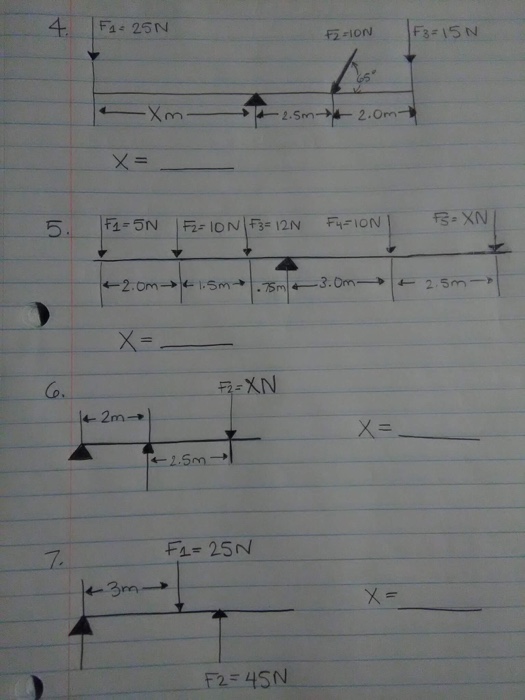 4. F1=25N F2=10N F3=15N
65°
Xm 2.5m 2.0m
X=
5. F1=5N F2=10N F3=12N F4=10N F5=XN
2.0m 1.5m .75m 3.0m 2.5m
X=
6. F2=XN
2m X=
2.5m
7. F1=25N
3m X=
F2=45N